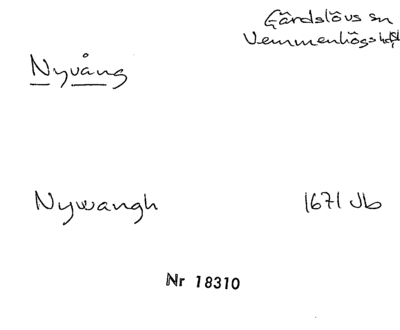 Gårdslövs sn
Vemmenhögs hd
Nyvång
Nywangh 1671 Jb
Nr 18310